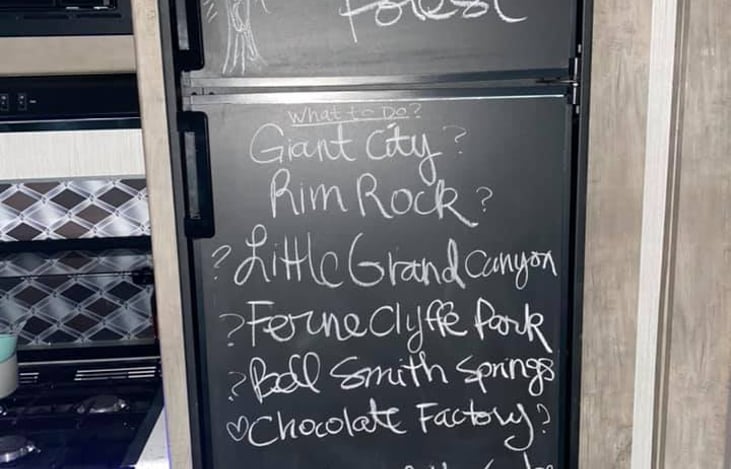 Forest
What to Do?
Giant City?
Rim Rock?
? Little Grand Canyon
? Ferne Clyffe Park
? Bell Smith Springs
♡Chocolate Factory?